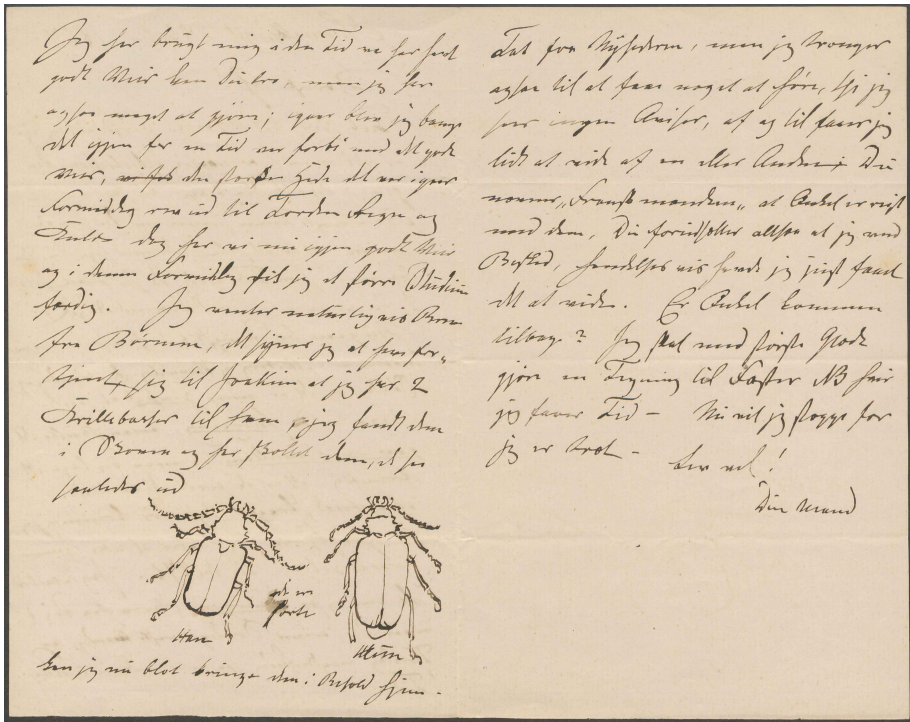 Jeg har brugt mig i den Tid vi har havt
godt Veir kan Du tro, men jeg har
ogsaa meget at gjøre; igaar blev jeg bange
det igjen for en Tid var forbi med det gode
Veir, den Hede det var igaar
Formiddag ud til Torden Regn og
Kulde Idag har vi nu igjen godt Veir
og i denne Formiddag fik jeg et større Studium
færdig. Jeg venter naturligvis Brev
fra Børnene, det synes jeg at have for„
tjent, sig til Joakim at jeg har 2
til ham, jeg fandt dem
i Skoven og har dem, de see
saaledes ud
de er
sorte
Han
Hun
kan jeg nu blot bringe dem i Behold hjem.
Tak for Nyhederne, men jeg trænger
ogsaa til at faae noget at høre, thi jeg
seer ingen Aviser, af og til faaer jeg
lidt at vide af en eller Anden. Du
nævner „Franskmanden„ at Onkel er reist
med dem, Du forudsætter altsaa at jeg veed
Besked, hændelsesvis havde jeg just faaet
det at vide. Er Onkel kommen
tilbage? Jeg skal med største Glæde
gjøre en Tegning til Faster NB hvis
jeg faaer Tid – Nu vil jeg stoppe for
jeg er træt –
Lev vel!
Din Mand